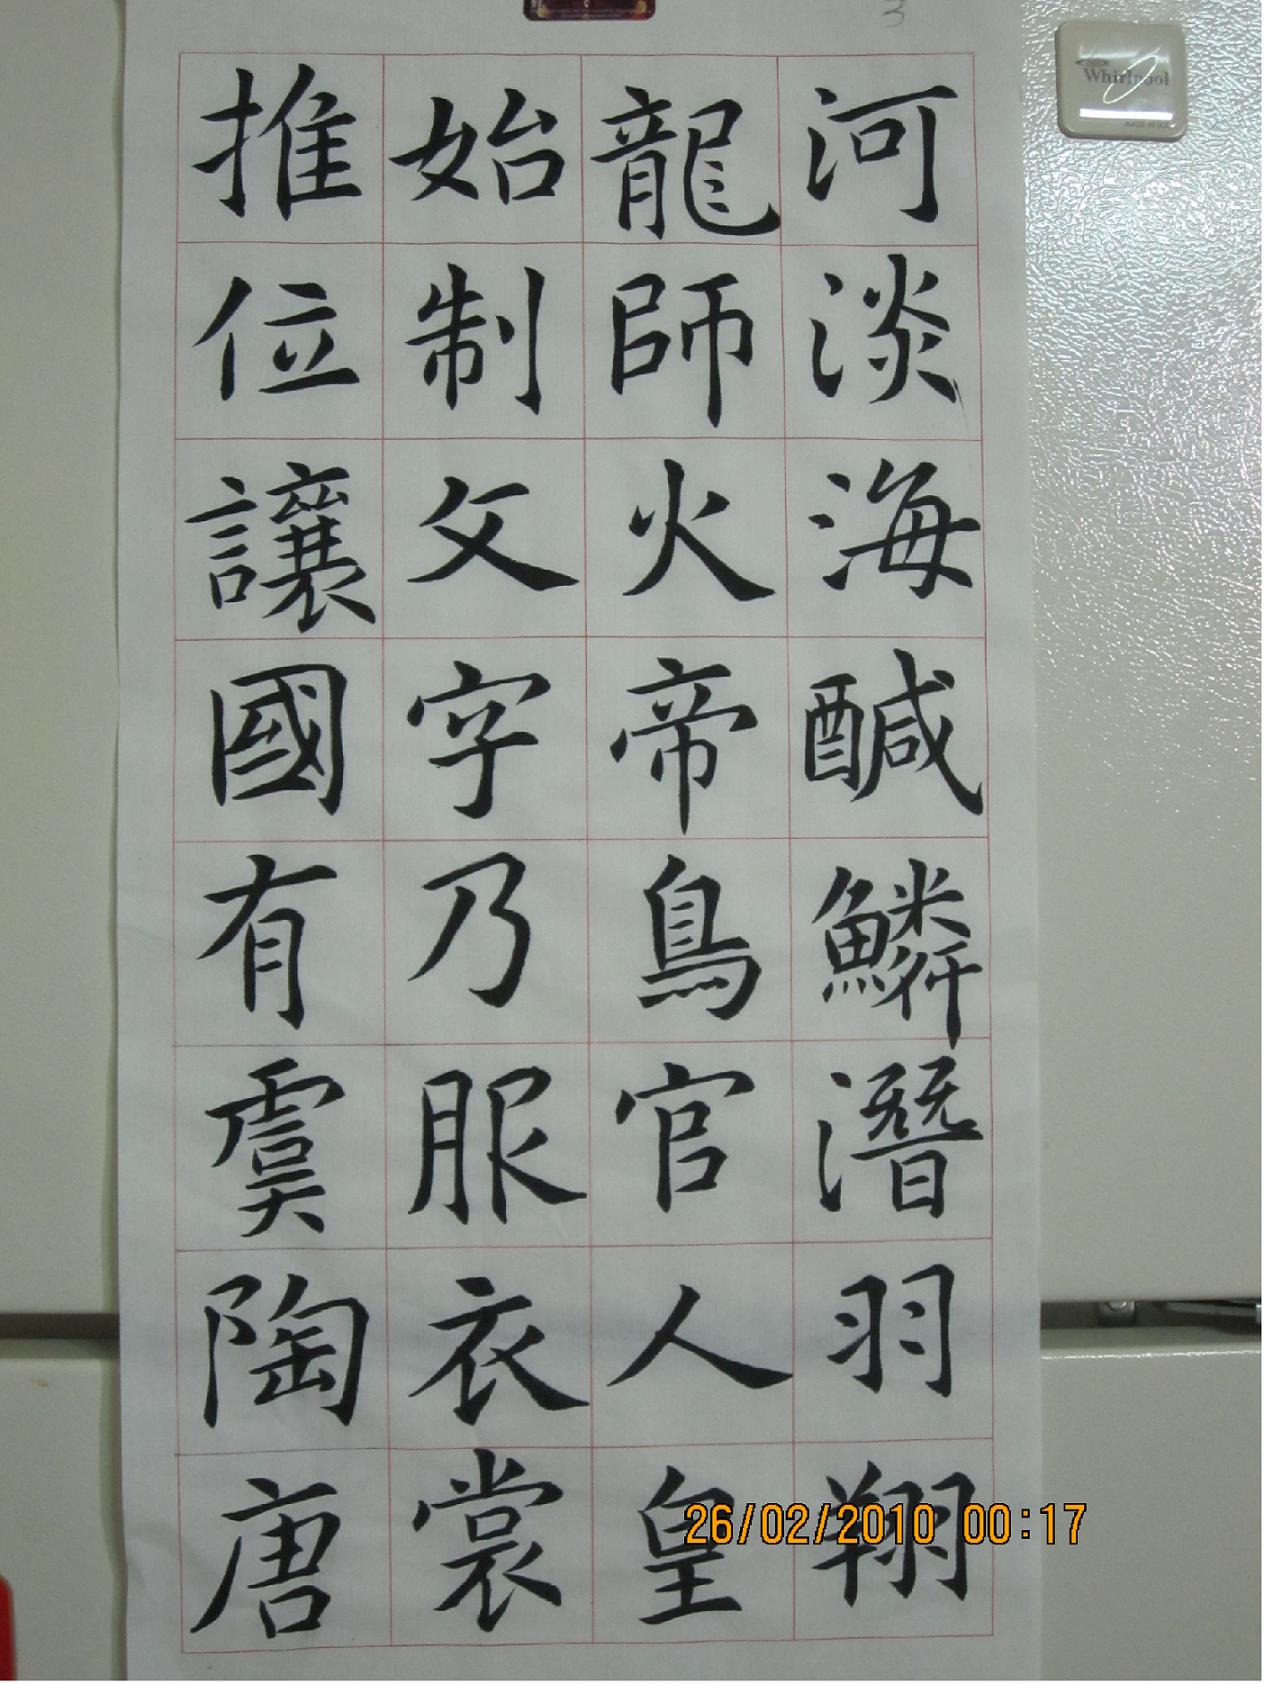 3
Whirlpool
河淡海鹹鱗潛羽翔
龍師火帝鳥官人皇
始制文字乃服衣裳
推位讓國有虞陶唐
26/02/2010 00:17